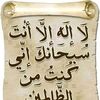 لَا إِلَٰهَ إِلَّا أَنْتَ
سُبْحَانَكَ إِنِّي
كُنْتُ مِنَ
الظَّالِمِينَ